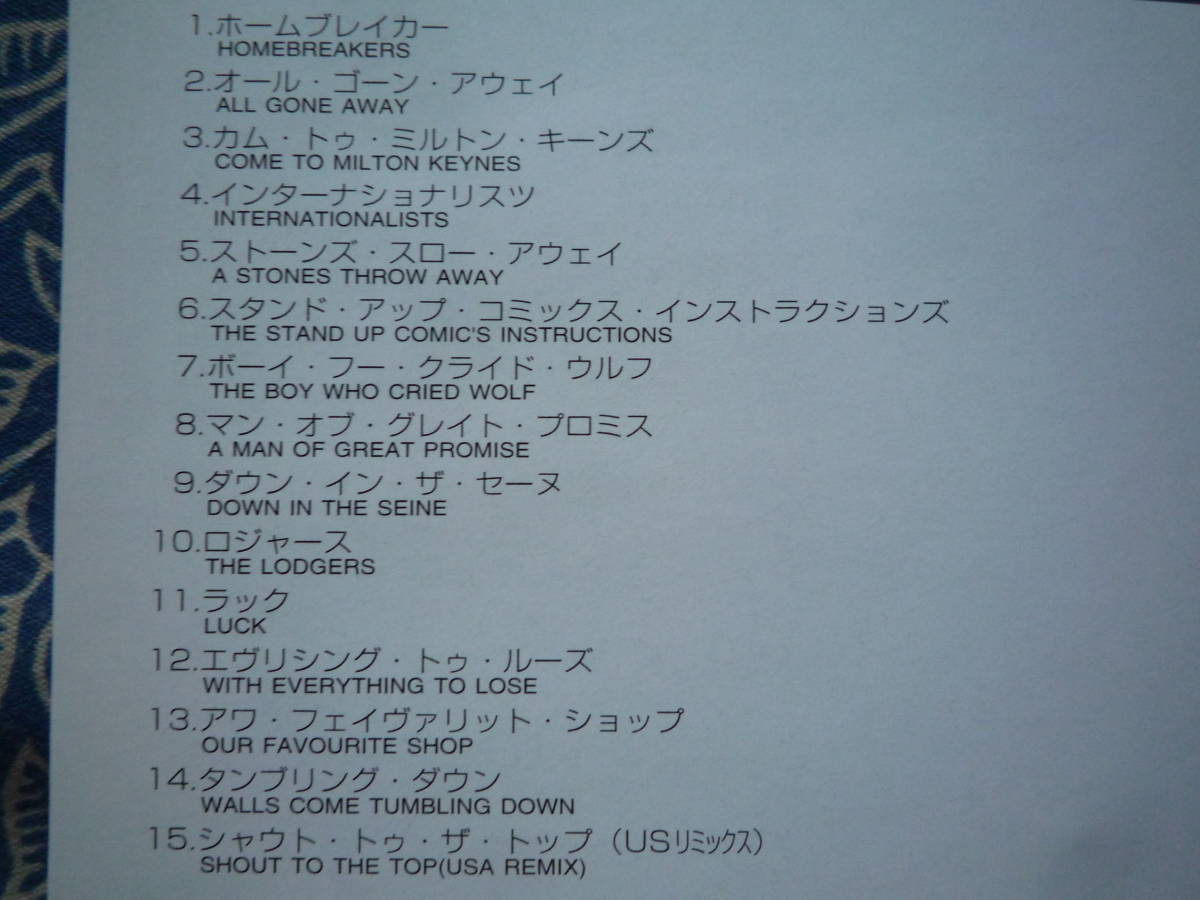 1.ホームブレイカー
HOMEBREAKERS
2.オール・ゴーン・アウェイ
ALL GONE AWAY
3.カム・トゥ・ミルトン・キーンズ
COME TO MILTON KEYNES
4.インターナショナリスツ
INTERNATIONALISTS
5.ストーンズ・スロー・アウェイ
A STONES THROW AWAY
6.スタンド・アップ・コミックス・インストラクションズ
THE STAND UP COMIC'S INSTRUCTIONS
7.ボーイ・フー・クライド・ウルフ
THE BOY WHO CRIED WOLF
8.マン・オブ・グレイト・プロミス
A MAN OF GREAT PROMISE
9.ダウン・イン・ザ・セーヌ
DOWN IN THE SEINE
10.ロジャース
THE LODGERS
11.ラック
LUCK
12.エヴリシング・トゥ・ルーズ
WITH EVERYTHING TO LOSE
13.アワ・フェイヴァリット・ショップ
OUR FAVOURITE SHOP
14.タンブリング・ダウン
WALLS COME TUMBLING DOWN
15.シャウト・トゥ・ザ・トップ（USリミックス）
SHOUT TO THE TOP(USA REMIX)